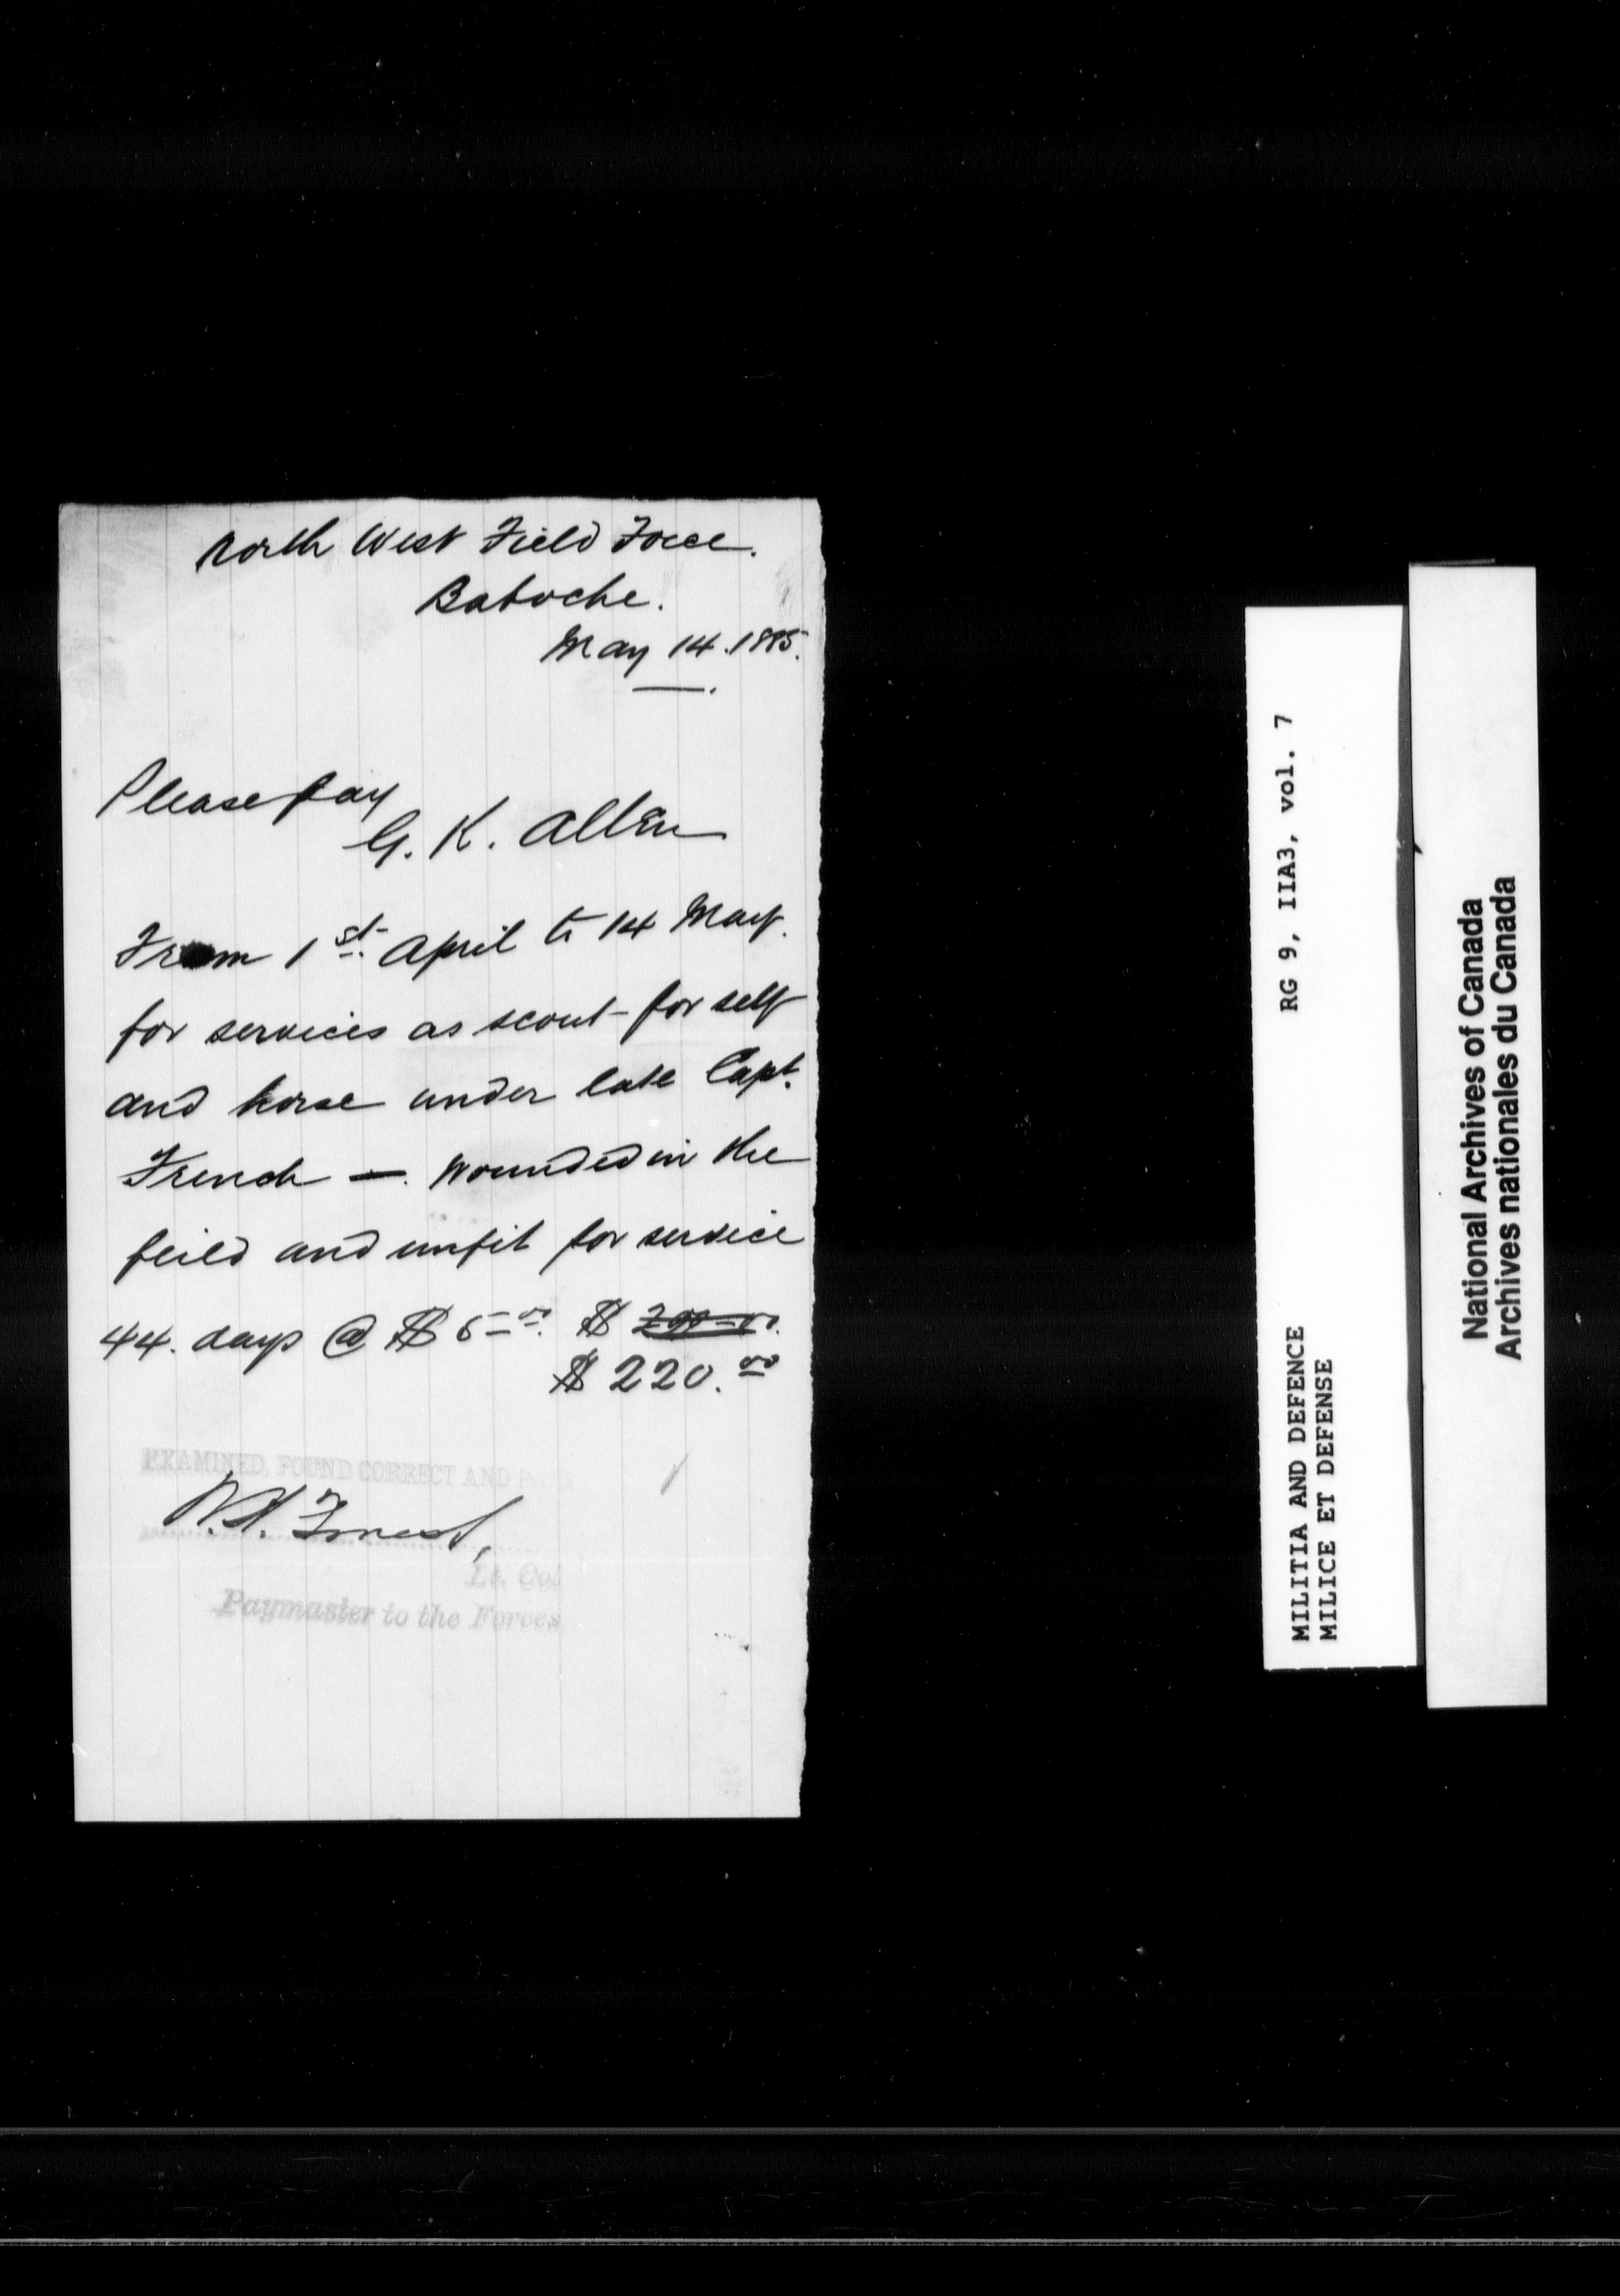 North West Field Force.
Batoche.
May 14. 1885.
Please pay
G. K. Allen
From 1st. April to 14 May.
for services as scout for self
and horse under late Capt.
French —. Wounded in the
feild and unfit for service
44. days @ $5.00. $
$220.00
EXAMINED, FOUND CORRECT AND
Lt. Col
Paymaster to the Forces
MILITIA AND DEFENCE RG 9, IIA3, vol. 7
MILICE ET DEFENSE
National Archives of Canada
Archives nationales du Canada